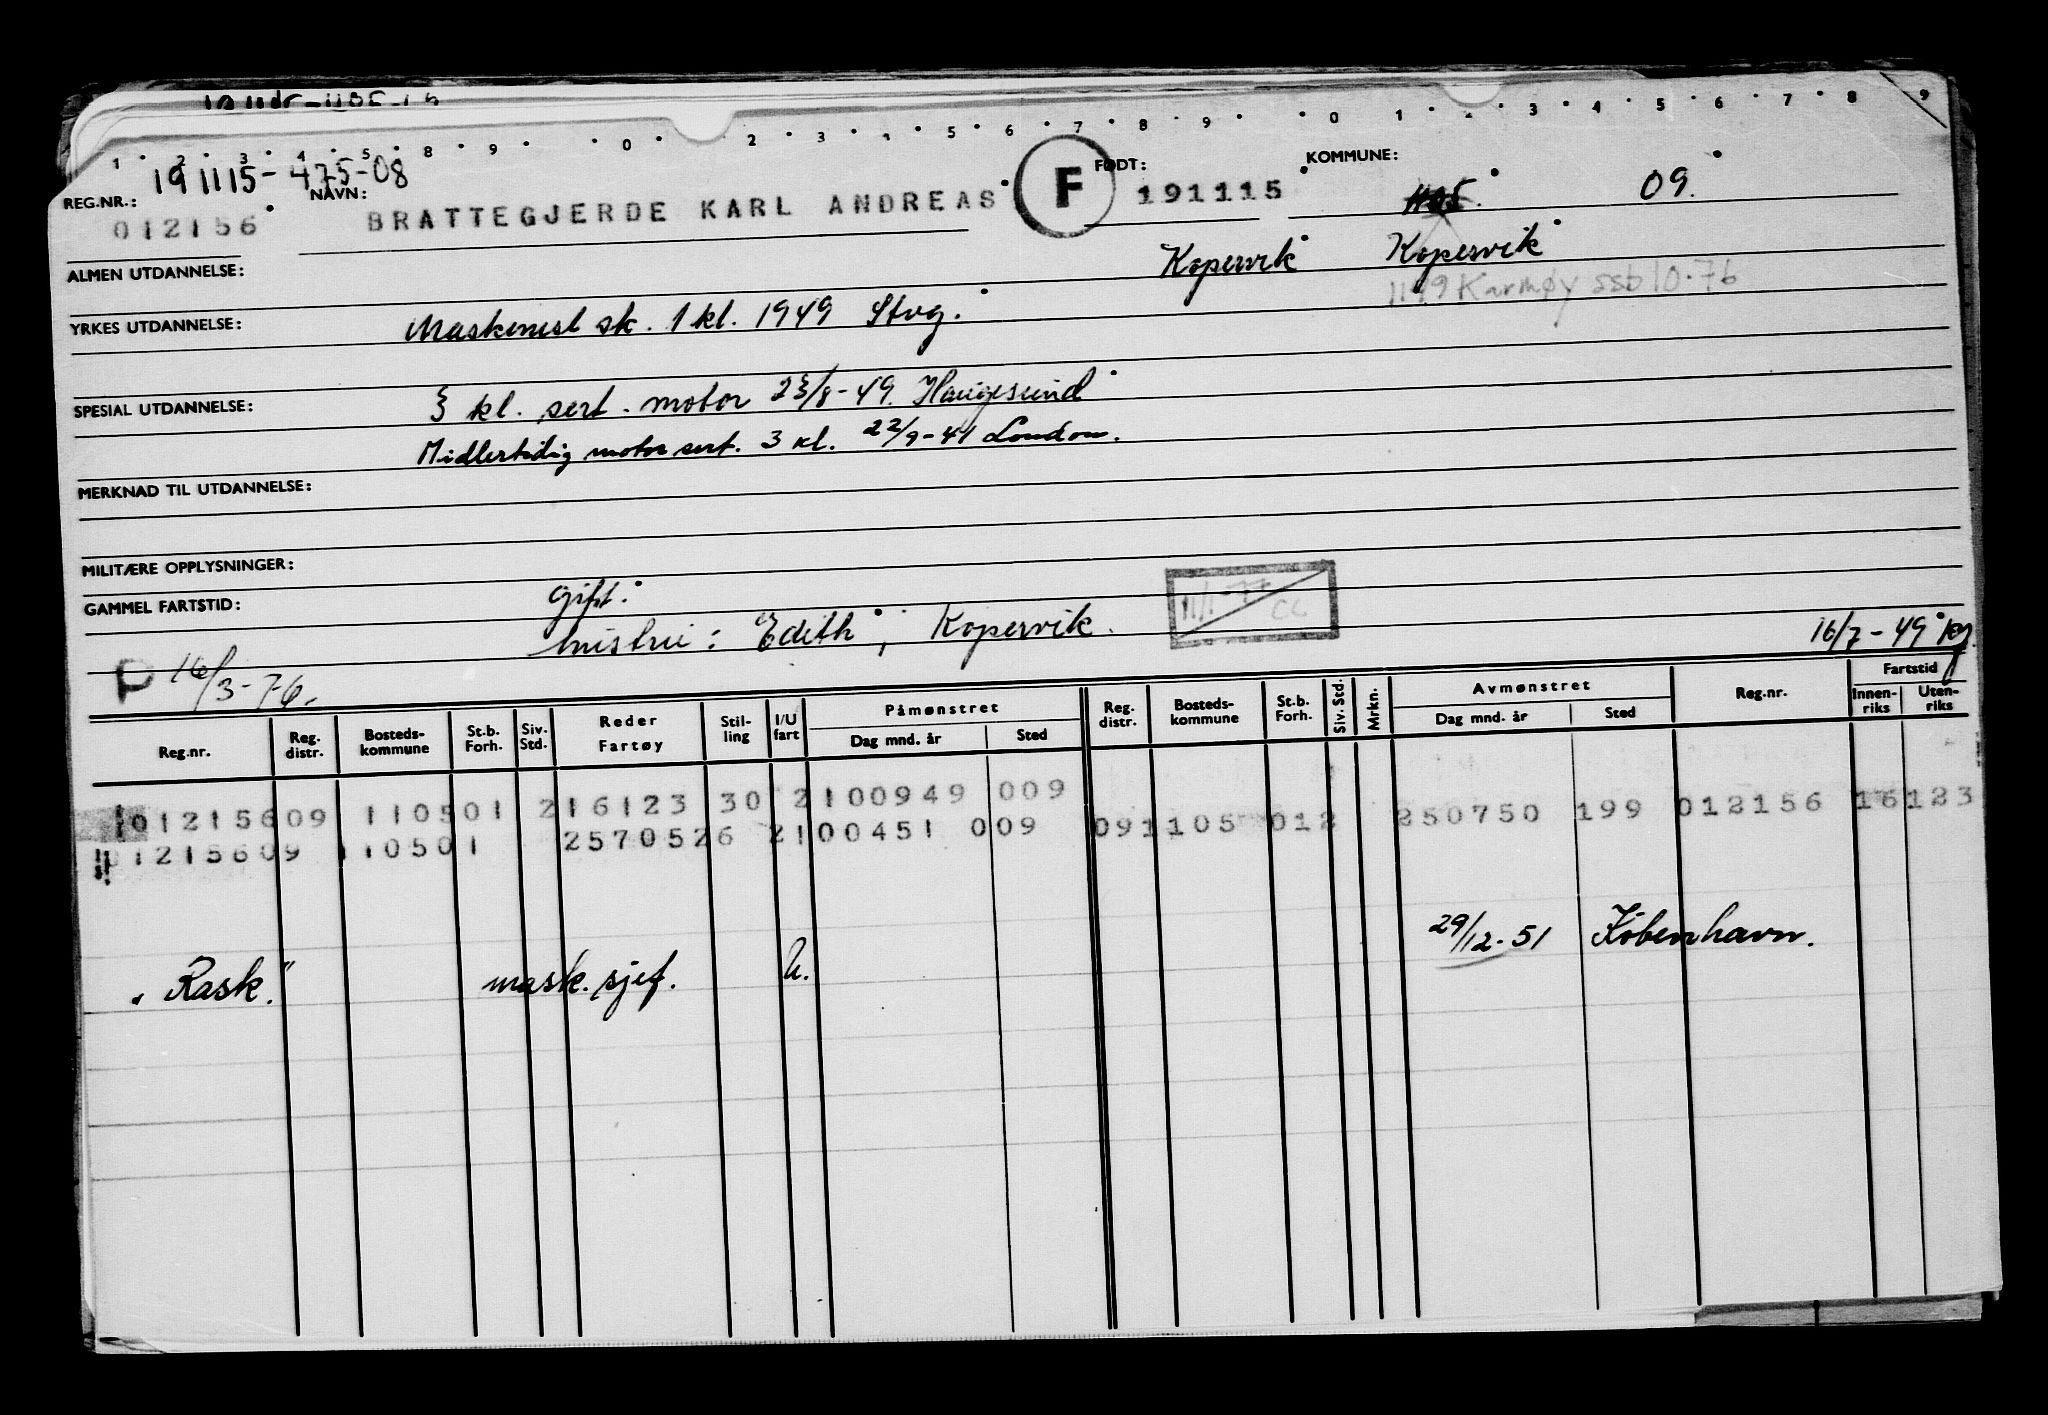 1 2 3 4 5 8 9 0 2 3 4 5 6 7 8 9 0 1 2 3 4 5 6 7 8 9
REG.NR.: 191115-475-08 NAVN: F FØDT: KOMMUNE:
012156 BRATTEGJERDE KARL ANDREAS 191115 1105. 09.
ALMEN UTDANNELSE: Kopervik Kopervik
1149 Karmøy ssb 10.76
YRKES UTDANNELSE: Maskinist sk. 1 kl. 1949 Stvg.
SPESIAL UTDANNELSE: 3 kl. sert. motor 23/8-49. Haugesund
Midlertidig motor sert. 3 kl. 22/9-41 London.
MERKNAD TIL UTDANNELSE:
MILITÆRE OPPLYSNINGER:
GAMMEL FARTSTID: Gift.
hustru: Edith, Kopervik. 11/1-77 CC
P 16/3-76. 16/7-49
Reg.nr. Reg. distr. Bosteds-kommune St.b. Forh. Siv. Std. Reder Fartøy Stil-ling I/U fart Påmønstret Dag mnd. år Sted Reg. distr. Bosteds-kommune St.b. Forh. Siv. Std. Mrkn. Avmønstret Dag mnd. år Sted Reg.nr. Fartstid Innen-riks Uten-riks
01215609 110501 216123 30 2100949 009 091105 012 250750 199 012156 16123
01215609 110501 2570526 2100451 009
"Rask." mask. sjef. U. 29/12-51 København.